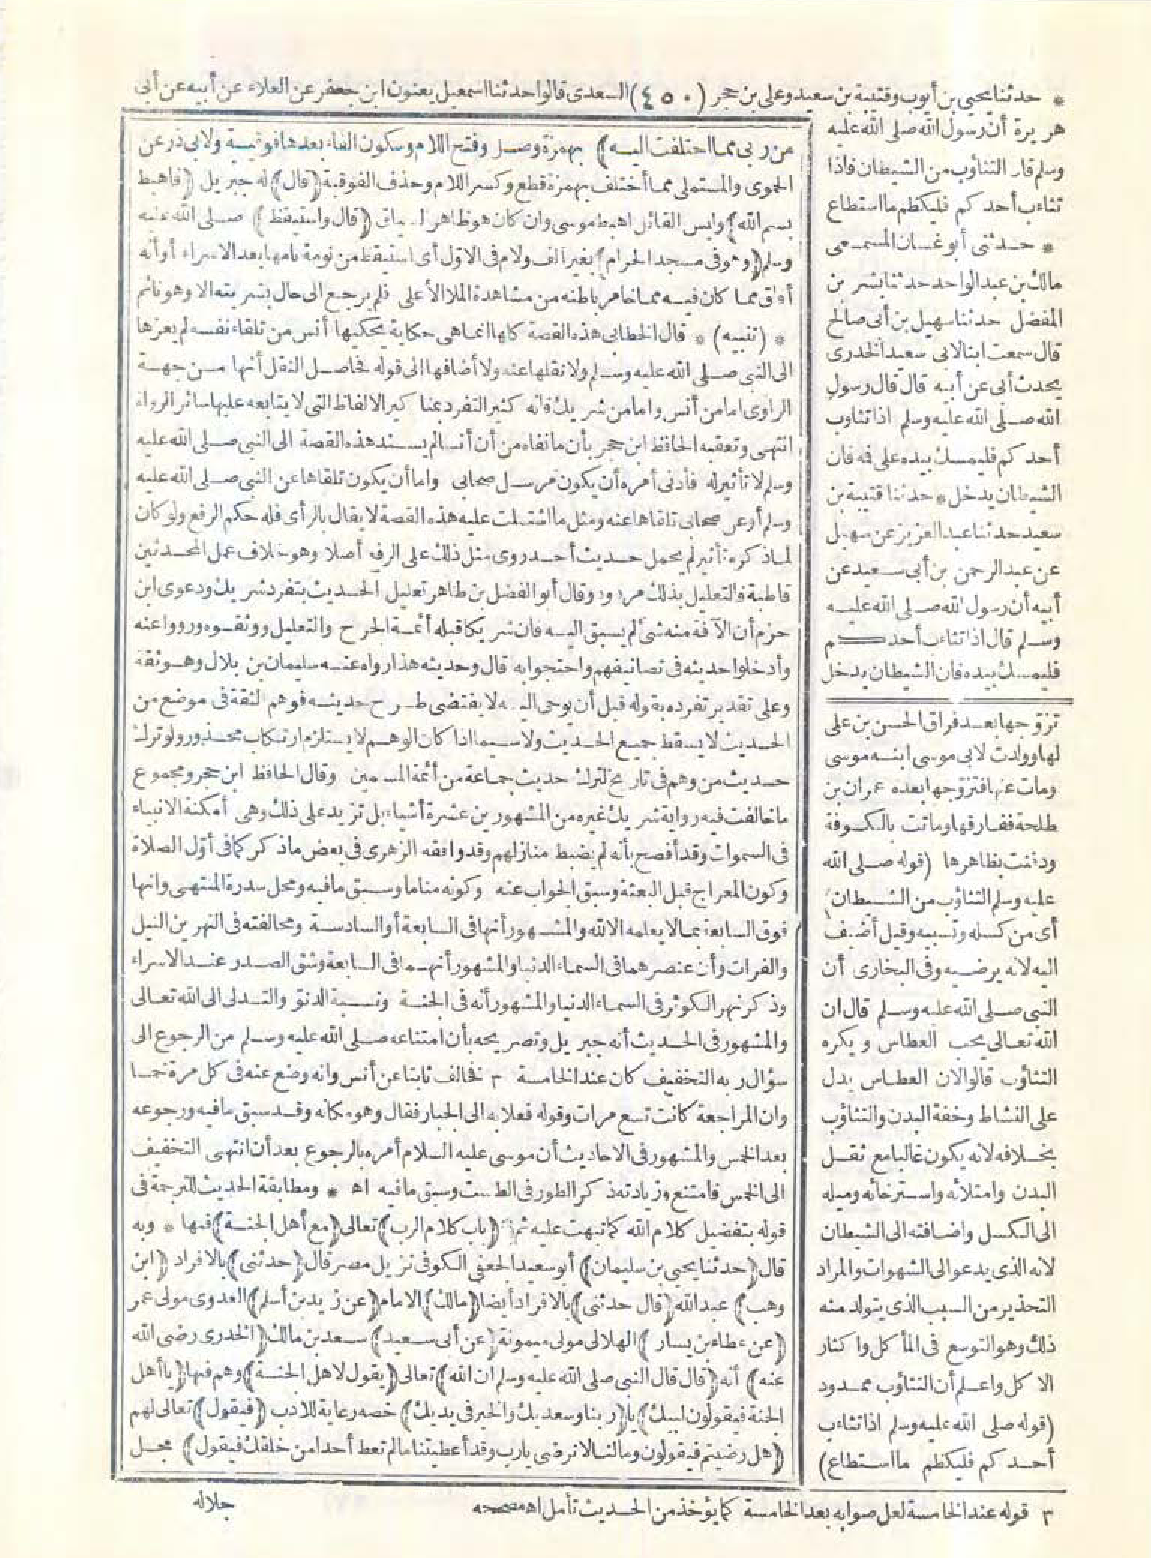 * حدثنا يحيى بن أيوب وقتيبة بن سعيد وعلى بن حجر (٤٥٠) السعدى قالوا حدثنا اسمعيل يعنون ابن جعفر عن العلاء عن أبيه عن أبى
هريرة أن رسول الله صلى الله عليه
وسلم قال التثاؤب من الشيطان فاذا
تثاءب أحدكم فليكظم ما استطاع
* حدثنى أبو غسان المسمعى
مالك بن عبد الواحد حدثنا بشر بن
المفضل حدثنا سهيل بن أبى صالح
قال سمعت ابنا لابى سعيد الخدرى
يحدث أبى عن أبيه قال قال رسول
الله صلى الله عليه وسلم اذا تثاوب
أحدكم فليمسك بيده على فه فان
الشيطان يدخل * حدثنا قتيبة بن
سعيد حدثنا عبد العزيز عن سهيل
عن عبد الرحمن بن أبى سعيد عن
أبيه أن رسول الله صلى الله عليه
وسلم قال اذا تثاءب أحدكم
فليمسك بيده فان الشيطان يدخل
تزوجها بعد فراق الحسن بن على
لها وولدت لابى موسى ابنه موسى
ومات عنها فتزوجها بعده عمران بن
طلحة ففارقها وماتت بالكوفة
ودفنت بظاهرها (قوله صلى الله
عليه وسلم التثاؤب من الشيطان)
أى من كسله وتسببه وقيل أضيف
اليه لانه يرضيه وفى البخارى أن
النبى صلى الله عليه وسلم قال ان
الله تعالى يحب العطاس ويكره
التثاؤب قالوا لان العطاس يدل
على النشاط وخفة البدن والتثاؤب
بخلافه لانه يكون غالبا مع ثقل
البدن وامتلائه واسترخائه وميله
الى الكسل واضافته الى الشيطان
لانه الذى يدعو الى الشهوات والمراد
التحذير من السبب الذى يتولد منه
ذلك وهو التوسع فى المأكل واكثار
الاكل واعلم أن التثاؤب ممدود
(قوله صلى الله عليه وسلم اذا تثاءب
أحدكم فليكظم ما استطاع)
من ربى مما اختلفت اليه) بهمزة وصل وفتح اللام وسكون الفاء بعدها فوقية ولابى ذر عن
الحموى والمستملى مما أختلف بهمزة قطع وكسر اللام وحذف الفوقية (قال) له جبريل (فاهبط
بسم الله) وليس القائل اهبط موسى وان كان هو ظاهر السياق (قال واستيقظ) صلى الله عليه
وسلم (وهو فى مسجد الحرام) بغير ألف ولام فى الاول أى استيقظ من نومة نامها بعد الاسراء أو أنه
أفاق مما كان فيه مما خامر باطنه من مشاهدة الملا الأعلى فلم يرجع الى حال بشريته الا وهو نائم
* (تنبيه) * قال الخطابى هذه القصة كلها انما هى حكاية يحكيها أنس من تلقاء نفسه لم يعزها
الى النبى صلى الله عليه وسلم ولا نقلها عنه ولا أضافها الى قوله فحاصل النقل أنها من جهة
الراوى اما من أنس واما من شريك فانه كثير التفرد بمناكير الالفاظ التى لا يتابعه عليها سائر الرواة
انتهى وتعقبه الحافظ ابن حجر بأن ما نفاه من أن أنسا لم يسند هذه القصة الى النبى صلى الله عليه
وسلم لا تأثير له فأدنى أمره أن يكون مرسل صحابى واما أن يكون تلقاها عن النبى صلى الله عليه
وسلم أو عن صحابى تلقاها عنه ومثل ما اشتملت عليه هذه القصة لا يقال بالرأى فله حكم الرفع ولو كان
لما ذكره تأثير لم يحمل حديث أحد روى مثل ذلك على الرفع أصلا وهو خلاف عمل المحدثين
قاطبة فالتعليل بذلك مردود وقال أبو الفضل بن طاهر تعليل الحديث بتفرد شريك ودعوى ابن
حزم أن الآفة منه شئ لم يسبق اليه فان شريكا قبله أئمة الجرح والتعديل ووثقوه ورووا عنه
وأدخلوا حديثه فى تصانيفهم واحتجوا به قال وحديثه هذا رواه عنه سليمان بن بلال وهو ثقة
وعلى تقدير تفرده بقوله قبل أن يوحى اليه لا يقتضى طرح حديثه فوهم الثقة فى موضع من
الحديث لا يسقط جميع الحديث ولا سيما اذا كان الوهم لا يستلزم ارتكاب محذور ولو ترك
حديث من وهم فى تاريخ لترك حديث جماعة من أئمة المسلمين وقال الحافظ ابن حجر ومجموع
ما خالفت فيه رواية شريك غيره من المشهورين عشرة أشياء بل تزيد على ذلك وهى أمكنة الانبياء
فى السموات وقد أفصح بأنه لم يضبط منازلهم وقد وافقه الزهرى فى بعض ما ذكر كما فى أول الصلاة
وكون المعراج قبل البعثة وسبق الجواب عنه وكونه مناما وسبق ما فيه ومحل سدرة المنتهى وانها
فوق السابعة بما لا يعلمه الا الله والمشهور أنها فى السابعة أو السادسة ومخالفته فى النهرين النيل
والفرات وأن عنصرهما فى السماء الدنيا والمشهور أنهما فى السابعة وشق الصدر عند الاسراء
وذكر نهر الكوثر فى السماء الدنيا والمشهور أنه فى الجنة ونسبة الدنو والتدلى الى الله تعالى
والمشهور فى الحديث أنه جبريل وتصريحه بأن امتناعه صلى الله عليه وسلم من الرجوع الى
سؤال ربه التخفيف كان عند الخامسة ٣ فخالف ثابتا عن أنس وانه وضع عنه فى كل مرة خمسا
وان المراجعة كانت تسع مرات وقوله فعلا به الى الجبار فقال وهو مكانه وقد سبق ما فيه ورجوعه
بعد الخمس والمشهور فى الاحاديث أن موسى عليه السلام أمره بالرجوع بعد أن انتهى التخفيف
الى الخمس فامتنع وزيادته ذكر الطور فى الطست وسبق ما فيه اه * ومطابقة الحديث للترجمة فى
قوله بتفضيل كلام الله كما نبهت عليه ثم (باب كلام الرب) تعالى (مع أهل الجنة) فيها * وبه
قال (حدثنا يحيى بن سليمان) أبو سعيد الجعفى الكوفى نزيل مصر قال (حدثنى) بالافراد (ابن
وهب) عبد الله (قال حدثنى) بالافراد أيضا (مالك) الامام (عن زيد بن أسلم) العدوى مولى عمر
(عن عطاء بن يسار) الهلالى مولى ميمونة (عن أبى سعيد) سعد بن مالك (الخدرى رضى الله
عنه) أنه (قال قال النبى صلى الله عليه وسلم ان الله) تعالى (يقول لاهل الجنة) وهم فيها (يا أهل
الجنة فيقولون لبيك) يا (ربنا وسعديك والخير فى يديك) خصه رعاية للادب (فيقول) تعالى لهم
(هل رضيتم فيقولون وما لنا لا نرضى يا رب وقد أعطيتنا ما لم تعط أحدا من خلقك فيقول) مجل
٣ قوله عند الخامسة لعل صوابه بعد الخامسة كما يؤخذ من الحديث تأمل اه مصححه
جلاله